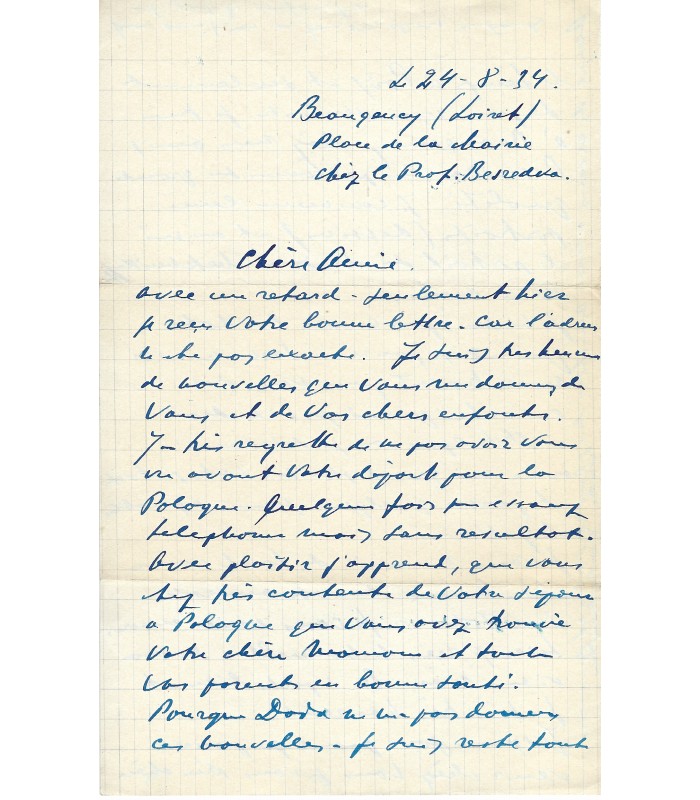 Le 24-8-34.
Beaugency (Loiret)
Place de la Mairie
chez le Prof. Besredka.
Chère Annie.
avec un retard - seulement hier
je reçu votre bonne lettre. car l'adres
n'ete pas exacte. Je suis très heureus
de nouvelles que vous me donnez de
vous et de vos chers enfants.
J très regrette de ne pas avoir vous
vu avant votre départ pour la
Pologne. Quelques fois essayé
telephone mais sans resultat.
avec plaisir j'apprend, que vous
etez très contente de votre sejour
a Pologne que vous avez trouvé
votre chère Maman et toute
vos parents en bonne santé.
Pourque Doda ne me pas donner
ces nouvelles. Je suis reste tout